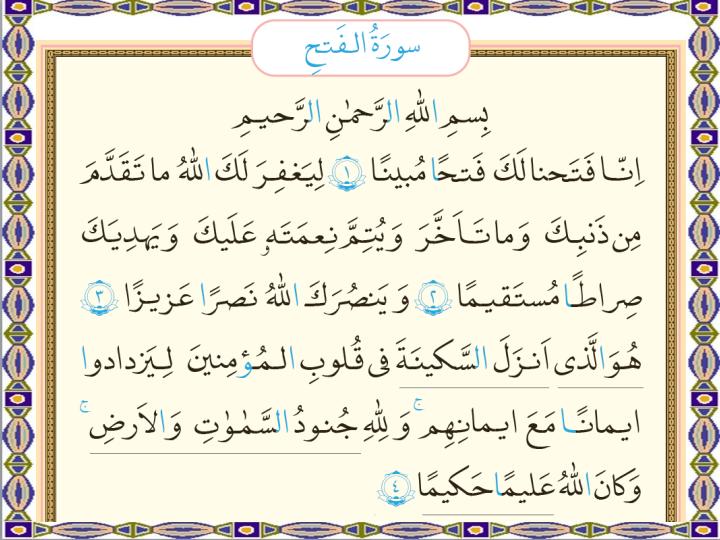 سورَةُ الـفَتحِ
بِسمِ اللهِ الرَّحمٰنِ الرَّحيمِ
اِنّـا فَتَحنا لَكَ فَتحًا مُبينًا ﴿١﴾ لِيَغفِرَ لَكَ اللهُ ما تَقَدَّمَ
مِن ذَنبِـكَ وَ ما تَـاَخَّرَ وَ يُتِمَّ نِعمَتَهٖ عَلَيكَ وَ يَهدِيَـكَ
صِراطًـا مُستَقيـمًا ﴿٢﴾ وَ يَنصُرَكَ اللهُ نَصرًا عَزيـزًا ﴿٣﴾
هُوَ الَّذى اَنـزَلَ السَّكينَـةَ فى قُلوبِ الـمُـؤمِنينَ لِـيَزدادوا
ايـمانًــا مَعَ ايـمانِهِم ۚ وَ لِلّٰهِ جُنودُ السَّمٰوٰتِ وَ الاَرضِ ۚ
وَ كانَ اللهُ عَليمًا حَكيمًا ﴿٤﴾